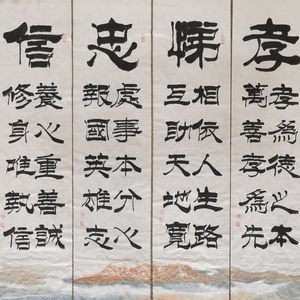 孝
孝爲德之本
萬善孝爲先
悌
相依人生路
互助天地寬
忠
處事本分心
報國英雄志
信
養心重善誠
修身唯執信